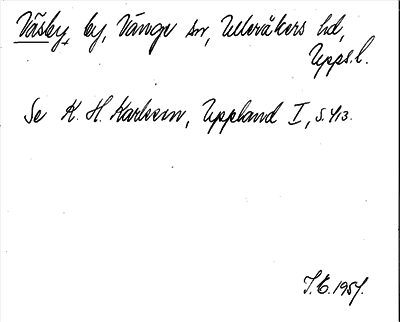 Väsby, by, Vänge sn, Ulleråkers hd,
Upps.l.
Se K. H. Karlsson, Uppland I, s. 413.
1957.